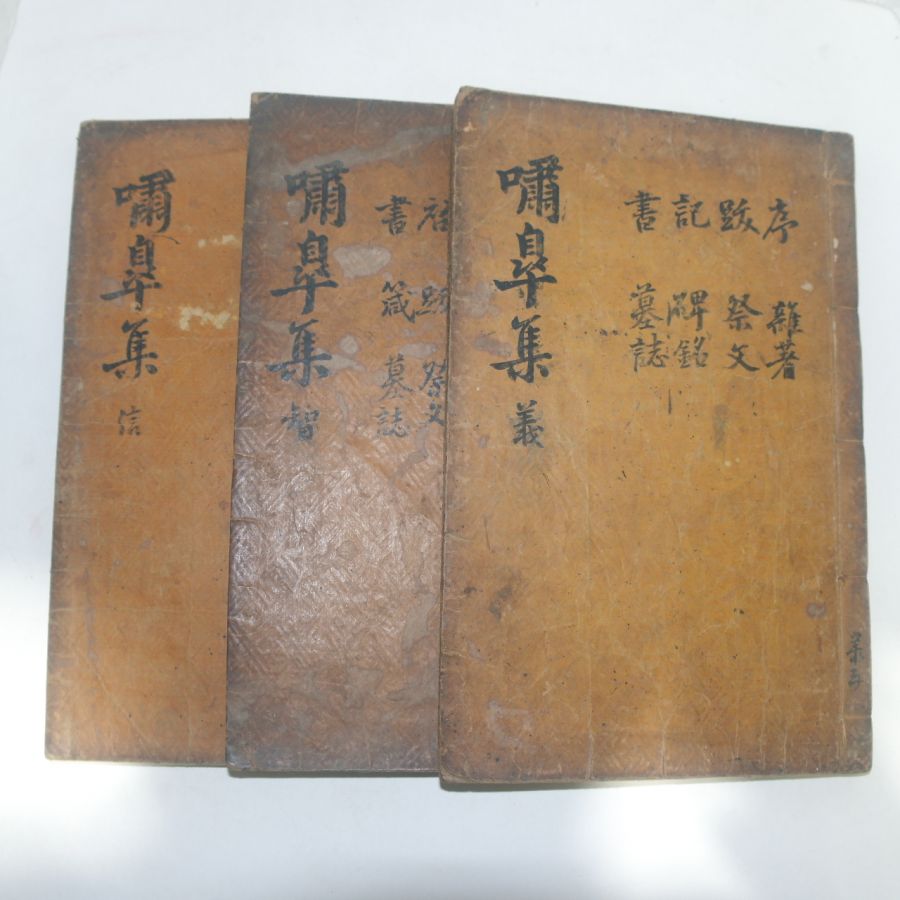 序 雜著
跋 祭文
記 碑銘
書 墓誌
嘯皐集 義
啓 跋 祭文
書 箴 墓誌
嘯皐集 智
嘯皐集 信